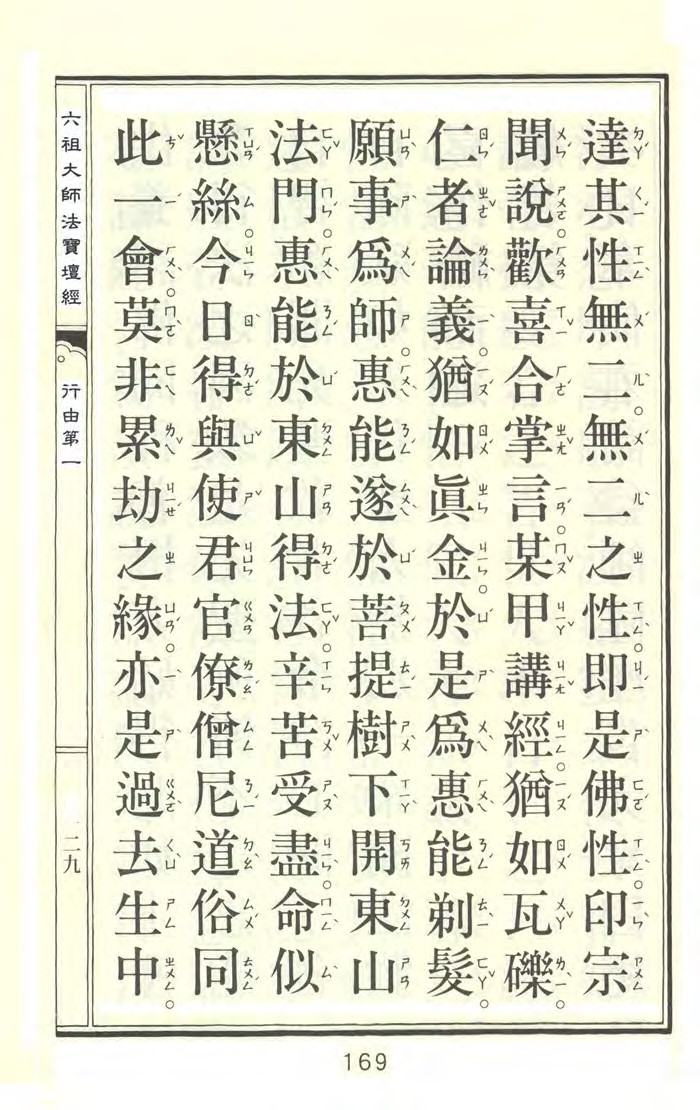 達其性無二。無二之性。即是佛性。印宗
聞說。歡喜合掌言。某甲講經。猶如瓦礫。
仁者論義。猶如眞金。於是爲惠能剃髮。
願事爲師。惠能遂於菩提樹下。開東山
法門。惠能於東山得法。辛苦受盡。命似
懸絲。今日得與使君官僚僧尼道俗同
此一會。莫非累劫之緣。亦是過去生中。
六祖大師法寶壇經
行由第一
二九
169